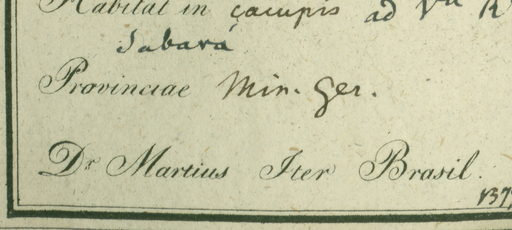 Habitat in çacupis ad V
Sabará
Provinciae Min. Ger.
Dr Martius Iter Brasil.